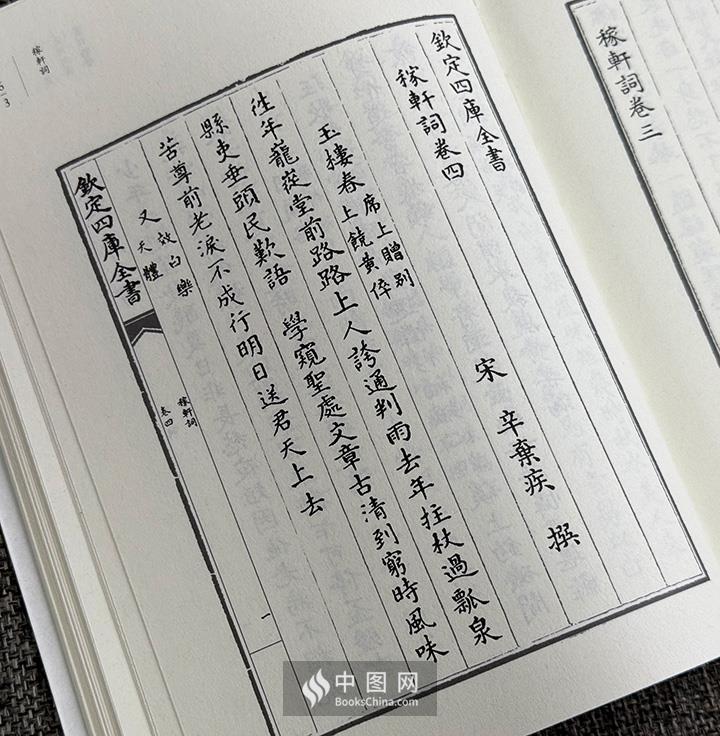 稼軒詞卷三
欽定四庫全書
稼軒詞卷四
宋 辛棄疾 撰
玉樓春 席上贈別上饒黃倅
往年巃嵸堂前路路上人誇通判雨去年拄杖過瓢泉
縣吏垂頭民歎語 學窺聖處文章古清到窮時風味
苦尊前老淚不成行明日送君天上去
又 效白樂天體
欽定四庫全書
稼軒詞
卷四
一
稼軒詞
中图网
BooksChina.com